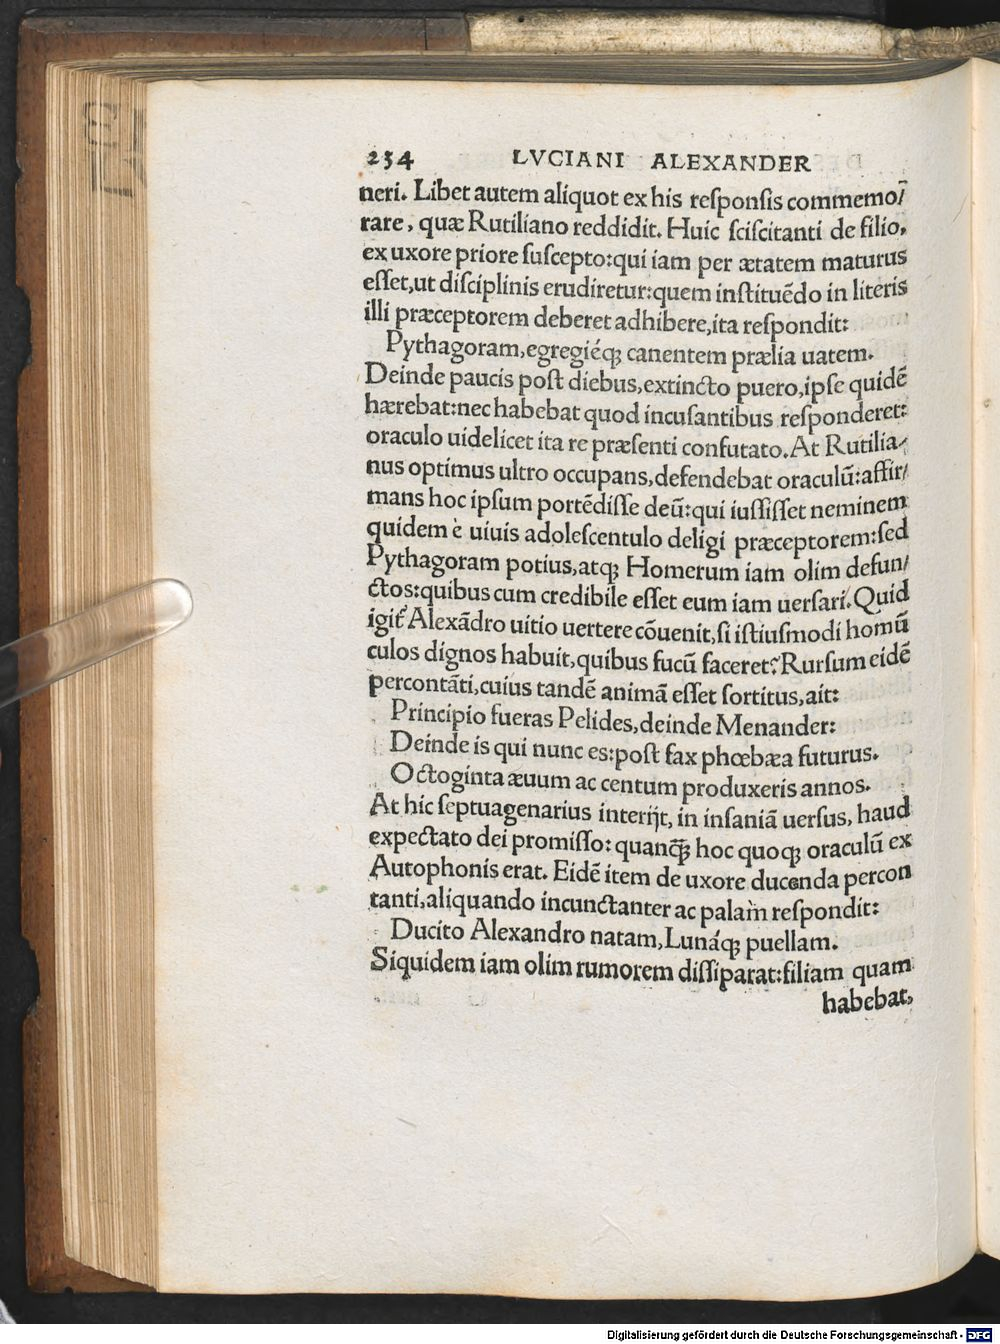 234 LVCIANI ALEXANDER
neri. Libet autem aliquot ex his reſponſis commemo/
rare, quæ Rutiliano reddidit. Huic ſciſcitanti de filio,
ex uxore priore ſuſcepto:qui iam per ætatem maturus
eſſet,ut diſciplinis erudiretur:quem inſtituẽdo in literis
illi præceptorem deberet adhibere,ita reſpondit:
Pythagoram,egregiéqꝫ canentem prælia uatem.
Deinde paucis poſt diebus,extincto puero,ipſe quidẽ
hærebat:nec habebat quod incuſantibus reſponderet:
oraculo uidelicet ita re præſenti confutato. At Rutilia/
nus optimus ultro occupans,defendebat oraculũ:affir/
mans hoc ipſum portẽdiſſe deũ:qui iuſſiſſet neminem
quidem è uiuis adoleſcentulo deligi præceptorem:ſed
Pythagoram potius,atqꝫ Homerum iam olim defun/
ctos:quibus cum credibile eſſet eum iam uerſari. Quid
igit᷑ Alexãdro uitio uertere cõuenit,ſi iſtiuſmodi homũ
culos dignos habuit,quibus fucũ faceret? Rurſum eidẽ
percontãti,cuius tandẽ animã eſſet ſortitus,ait:
Principio fueras Pelides,deinde Menander:
Deinde is qui nunc es:poſt fax phœbæa futurus.
Octoginta æuum ac centum produxeris annos.
At hic ſeptuagenarius interijt, in inſaniã uerſus, haud
expectato dei promiſſo: quanq̃ꝫ hoc quoqꝫ oraculũ ex
Autophonis erat. Eidẽ item de uxore ducenda percon
tanti,aliquando incunctanter ac palàm reſpondit:
Ducito Alexandro natam,Lunáqꝫ puellam.
Siquidem iam olim rumorem diſſiparat:filiam quam
habebat,
Digitalisierung gefördert durch die Deutsche Forschungsgemeinschaft - DFG